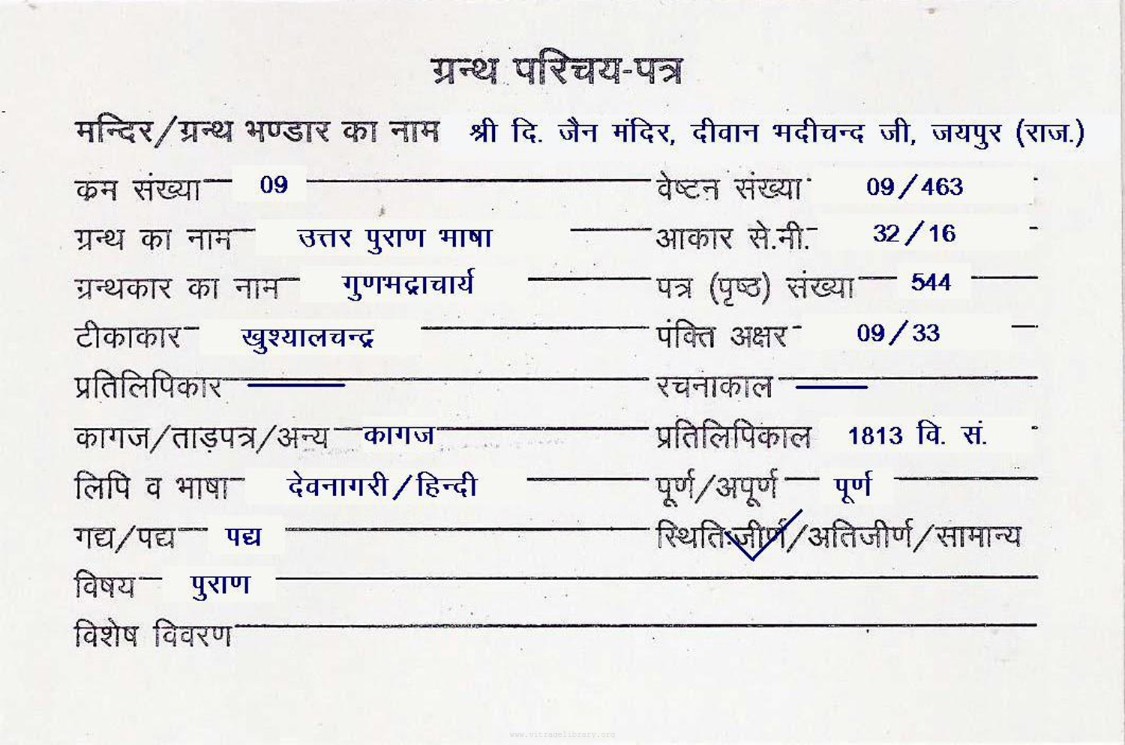 ग्रन्थ परिचय-पत्र
मन्दिर/ग्रन्थ भण्डार का नाम श्री दि. जैन मंदिर, दीवान भदीचन्द जी, जयपुर (राज.)
क्रम संख्या 09 वेष्टन संख्या 09/463
ग्रन्थ का नाम उत्तर पुराण भाषा आकार से.मी. 32/16
ग्रन्थकार का नाम गुणभद्राचार्य पत्र (पृष्ठ) संख्या 544
टीकाकार खुश्यालचन्द्र पंक्ति अक्षर 09/33
प्रतिलिपिकार — रचनाकाल —
कागज/ताड़पत्र/अन्य कागज प्रतिलिपिकाल 1813 वि. सं.
लिपि व भाषा देवनागरी/हिन्दी पूर्ण/अपूर्ण पूर्ण
गद्य/पद्य पद्य स्थिति:जीर्ण/अतिजीर्ण/सामान्य
विषय पुराण
विशेष विवरण